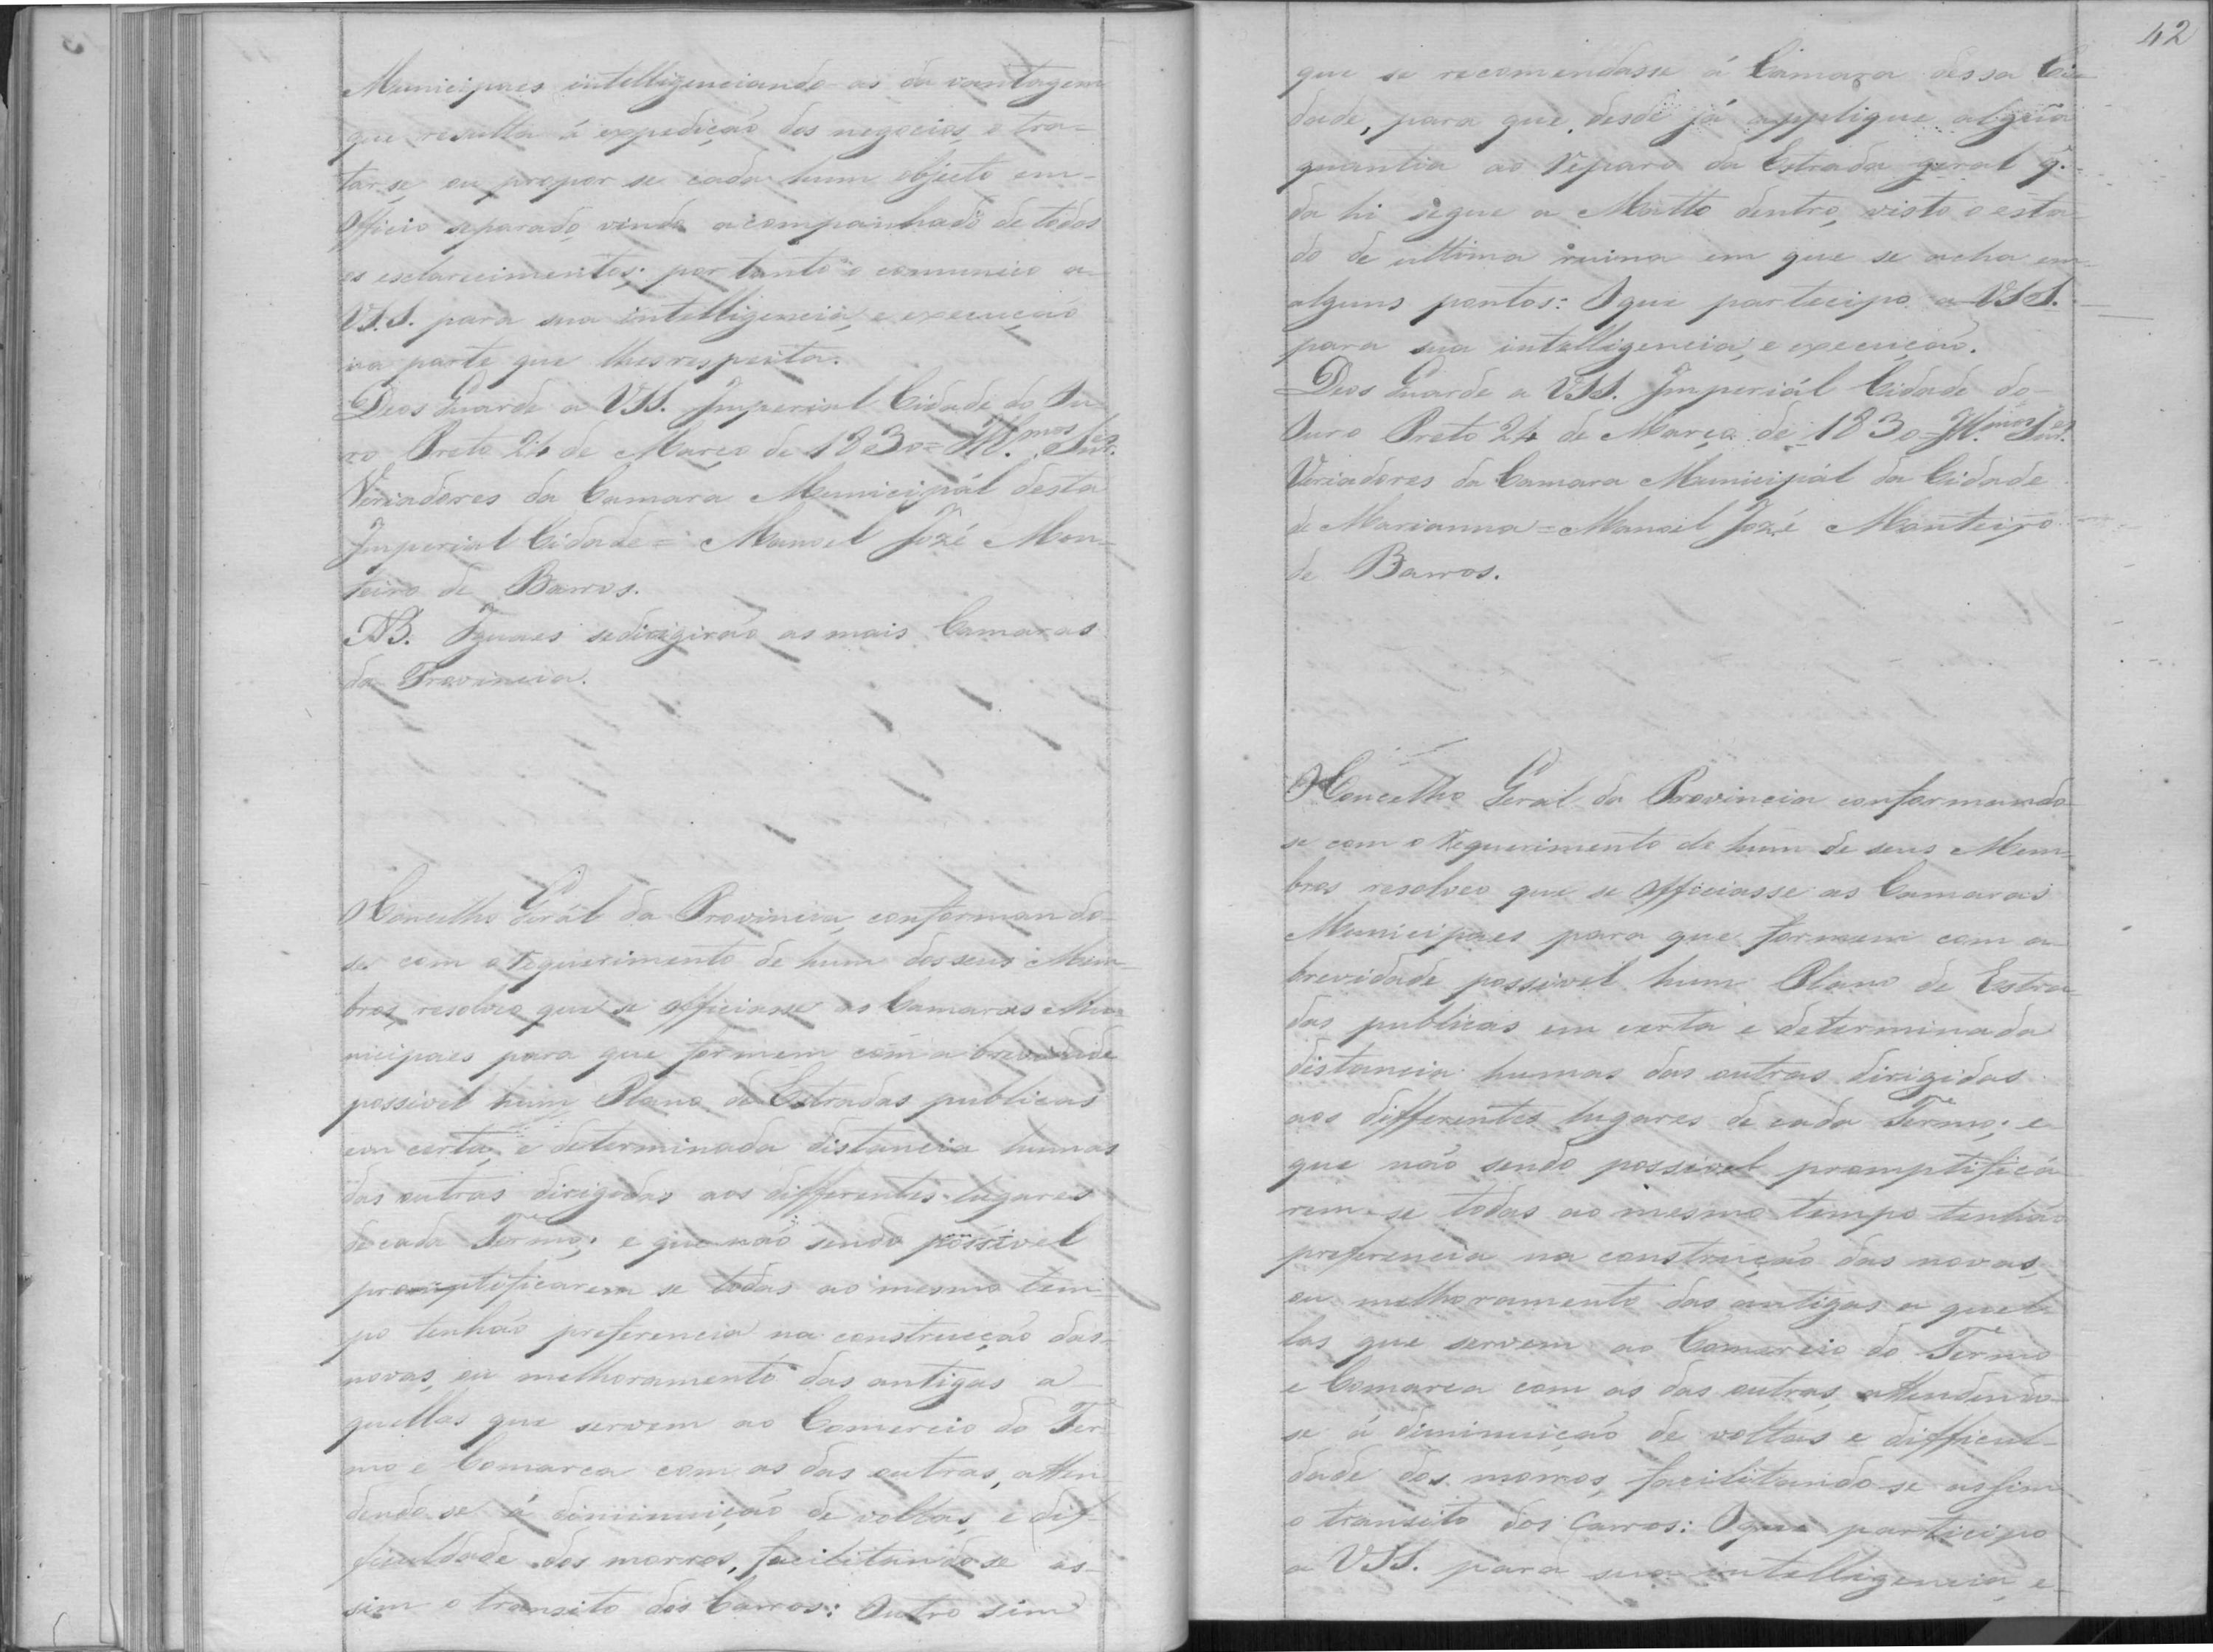 Municipaes intelligenciando-as da vantagem
que resulta á expedição dos negocios, e tra-
tar se, ou propor se cada hum objecto em
Officio separado, vindo acompanhado de todos
os esclarecimentos; por tanto o communico a
VSS. para sua intelligencia, e execução
na parte que lhes respeita.
Deos Guarde a VSS. Imperial Cidade do Ou-
ro Preto 24 de Março de 1830 = Ill.mos Snr.es
Veriadores da Camara Municipál desta
Imperial Cidade = Manoel Jozé Mon-
teiro de Barros.
NB. Iguaes se dirigirão as mais Camaras
da Provincia.
O Concelho Gerál da Provincia, conformando-
se com o requerimento de hum dos seus Mem-
bros, resolveo que se officiasse as Camaras Mu-
nicipaes para que formem com a brevidade
possivel hum Plano de Estradas publicas
em certa, e determinada distancia humas
das outras dirigidas aos differentes lugares
de cada Termo; e que não sendo possivel
promptificarem se todas ao mesmo tem-
po tenhão preferencia na construcção das
novas, ou melhoramento das antigas a
quellas que servem ao Comercio do Ter
mo e Comarca com as das outras, atten
dendo se á diminuição de voltas, e dif-
ficuldade dos morros, facilitando se as-
sim o transito dos Carros: Outro sim
42
que se recomendasse á Camara dessa Ci-
dade, para que desde já applique algũa
quantia ao reparo da Estrada geral q.
da hi segue a Matto dentro, visto o esta-
do de ultima ruina em que se acha em
alguns pontos: O que partecipo a VSS.
para sua intelligencia, e execução.
Deos Guarde a VSS. Imperiál Cidade do
Ouro Preto 24 de Março de 1830 = Ill.mos Snr.es
Veriadores da Camara Municipál da Cidade
de Marianna = Manoel Jozé Monteiro
de Barros.
O Concelho Geral da Provincia conformando
se com o requerimento de hum de seus Mem-
bros resolveo que se Officiasse as Camaras
Municipaes para que formem com a
brevidade possivel hum Plano de Estra-
das publicas em certa e determinada
distancia humas das outras dirigidas
aos differentes lugares de cada Termo; e
que não sendo possivel promptifica
rem-se todas ao mesmo tempo tenhão
preferencia na construcção das novas,
ou melhoramento das antigas a quel-
las que servem ao Comercio do Termo
e Comarca com as das outras, attendendo
se á diminuição de voltas e difficul-
dade dos morros, facilitando-se assim
o transito dos Carros: O que participo
a VSS. para sua intelligencia, e